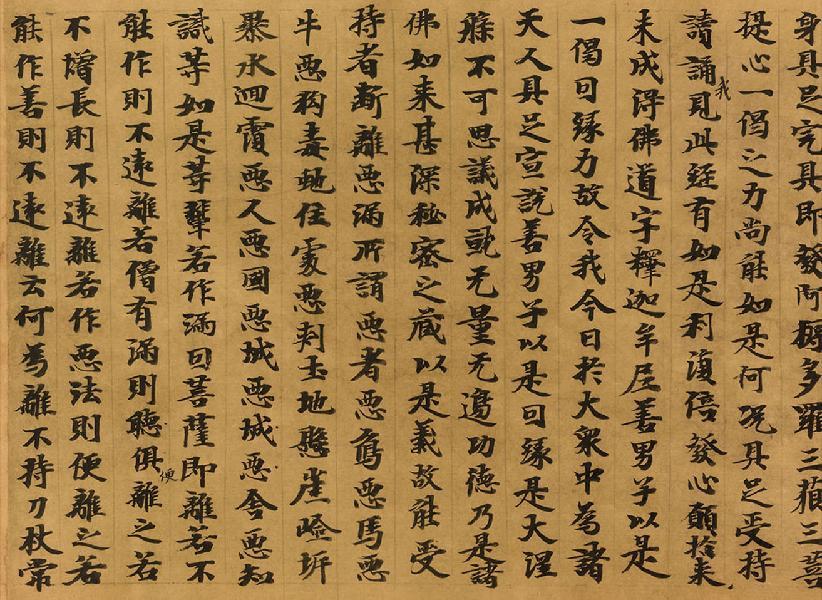 身具足完具即發阿耨多羅三藐三菩
提心一偈之力尚能如是何況具足受持
讀誦我見此經有如是利復倍發心願於未
来成得佛道字釋迦牟尼善男子以是
一偈因緣力故令我今日於大眾中為諸
天人具足宣說善男子以是因緣是大涅
槃不可思議成就无量无邊功德乃是諸
佛如来甚深秘密之藏以是義故能受
持者斷離惡漏所謂惡者惡象惡馬惡
牛惡狗毒虵住處惡刺土地懸崖嶮岸
暴水迴澓惡人惡國惡城惡城惡舍惡知
識等如是等輩若作漏因菩薩即便離若不
能作則不遠離若僧有漏則聽俱離之若
不增長則不遠離若作惡法則便離之若
能作善則不遠離云何為離不持刀杖常